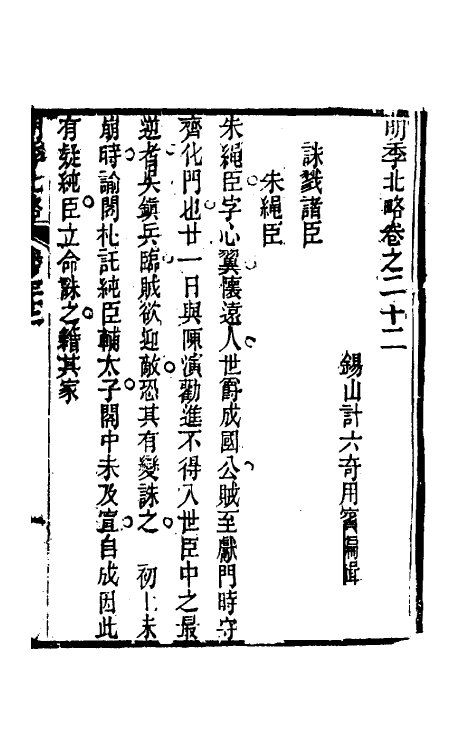 明季北略卷之二十二
錫山計六奇用賓編輯
誅戮諸臣
朱純臣
朱純臣字心翼懷遠人世爵成國公賊至獻門時守
齊化門也廿一日與陳演勸進不得入世臣中之最
逆者吳鎮兵臨賊欲迎敵恐其有變誅之　初上未
崩時諭閣札託純臣輔太子閣中未及宣自成因此
有疑純臣立命誅之籍其家